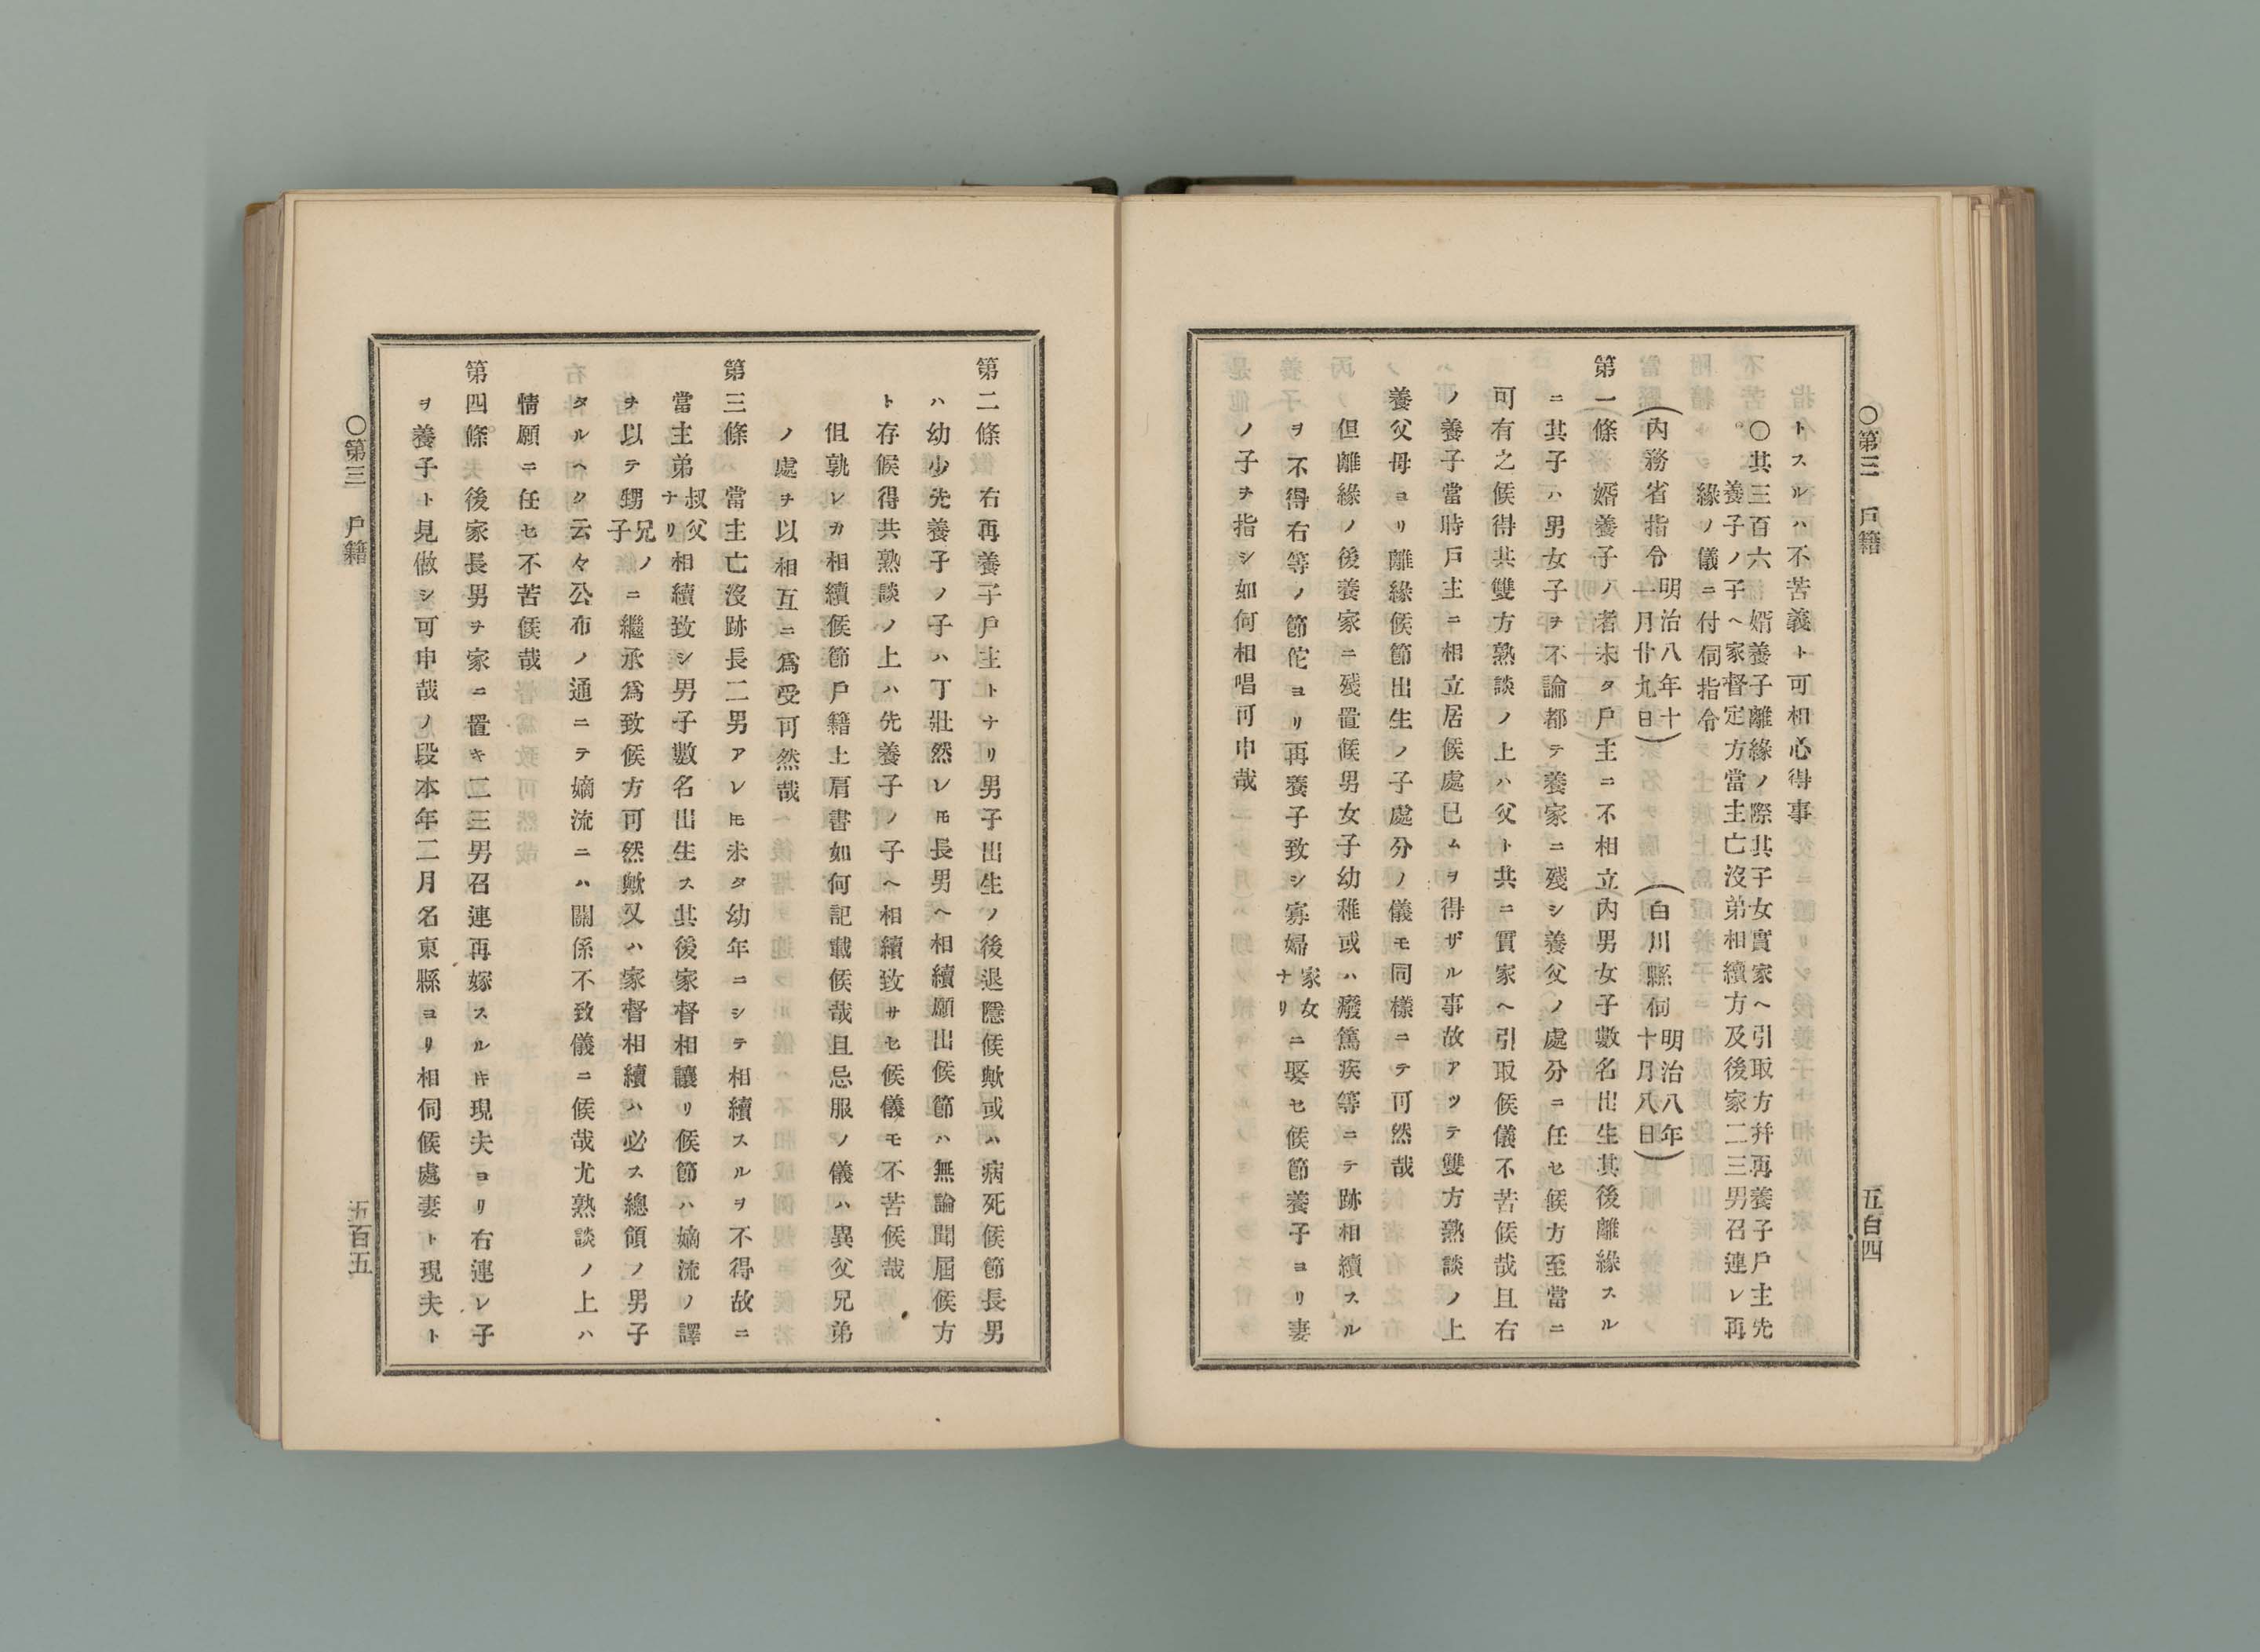 〇第三　戶籍
五百四
トスルハ不苦義ト可相心得事
〇其三百六　婿養子離緣ノ際其子女實家ヘ引取方幷再養子戶主先
養子ノ子ヘ家督定方當主亡沒弟相續方及後家二三男召連レ再
緣ノ儀ニ付伺指令
（內務省指令明治八年十一月廿九日）（白川縣伺明治八年十月八日）
第一條　婿養子ノ者未タ戶主ニ不相立內男女子數名出生其後離緣スル
ニ其子ハ男女子ヲ不論都テ養家ニ殘シ養父ノ處分ニ任セ候方至當ニ
可有之候得共雙方熟談ノ上ハ父ト共ニ實家ヘ引取候儀不苦候哉且右
ノ養子當時戶主ニ相立居候處已ムヲ得ザル事故アツテ雙方熟談ノ上
養父母ヨリ離緣候節出生ノ子處分ノ儀モ同樣ニテ可然哉
但離緣ノ後養家ニ殘置候男女子幼稚或ハ癈篤疾等ニテ跡相續スル
ヲ不得右等ノ節佗ヨリ再養子致シ寡婦家女ナリニ娶セ候節養子ヨリ妻
ノ子ヲ指シ如何相唱可申哉
第二條　右再養子戶主トナリ男子出生ノ後退隱候歟或ハ病死候節長男
ハ幼少先養子ノ子ハ丁壯然レ𪜈長男ヘ相續願出候節ハ無論聞屆候方
ト存候得共熟談ノ上ハ先養子ノ子ヘ相續致サセ候儀モ不苦候哉
但孰レカ相續候節戶籍上肩書如何記載候哉且忌服ノ儀ハ異父兄弟
ノ處ヲ以相互ニ爲受可然哉
第三條　當主亡沒跡長二男アレ𪜈未タ幼年ニシテ相續スルヲ不得故ニ
當主弟叔父ナリ相續致シ男子數名出生ス其後家督相讓リ候節ハ嫡流ノ譯
ヲ以テ甥兄ノ子ニ繼承爲致候方可然歟又ハ家督相續ハ必ス總領ノ男子
タルヘク云々公布ノ通ニテ嫡流ニハ關係不致儀ニ候哉尤熟談ノ上ハ
情願ニ任セ不苦候哉
第四條　後家長男ヲ家ニ置キ二三男召連再嫁スル𪜈現夫ヨリ右連レ子
ヲ養子ト見做シ可申哉ノ段本年二月名東縣ヨリ相伺候處妻ト現夫ト
〇第三　戶籍
五百五